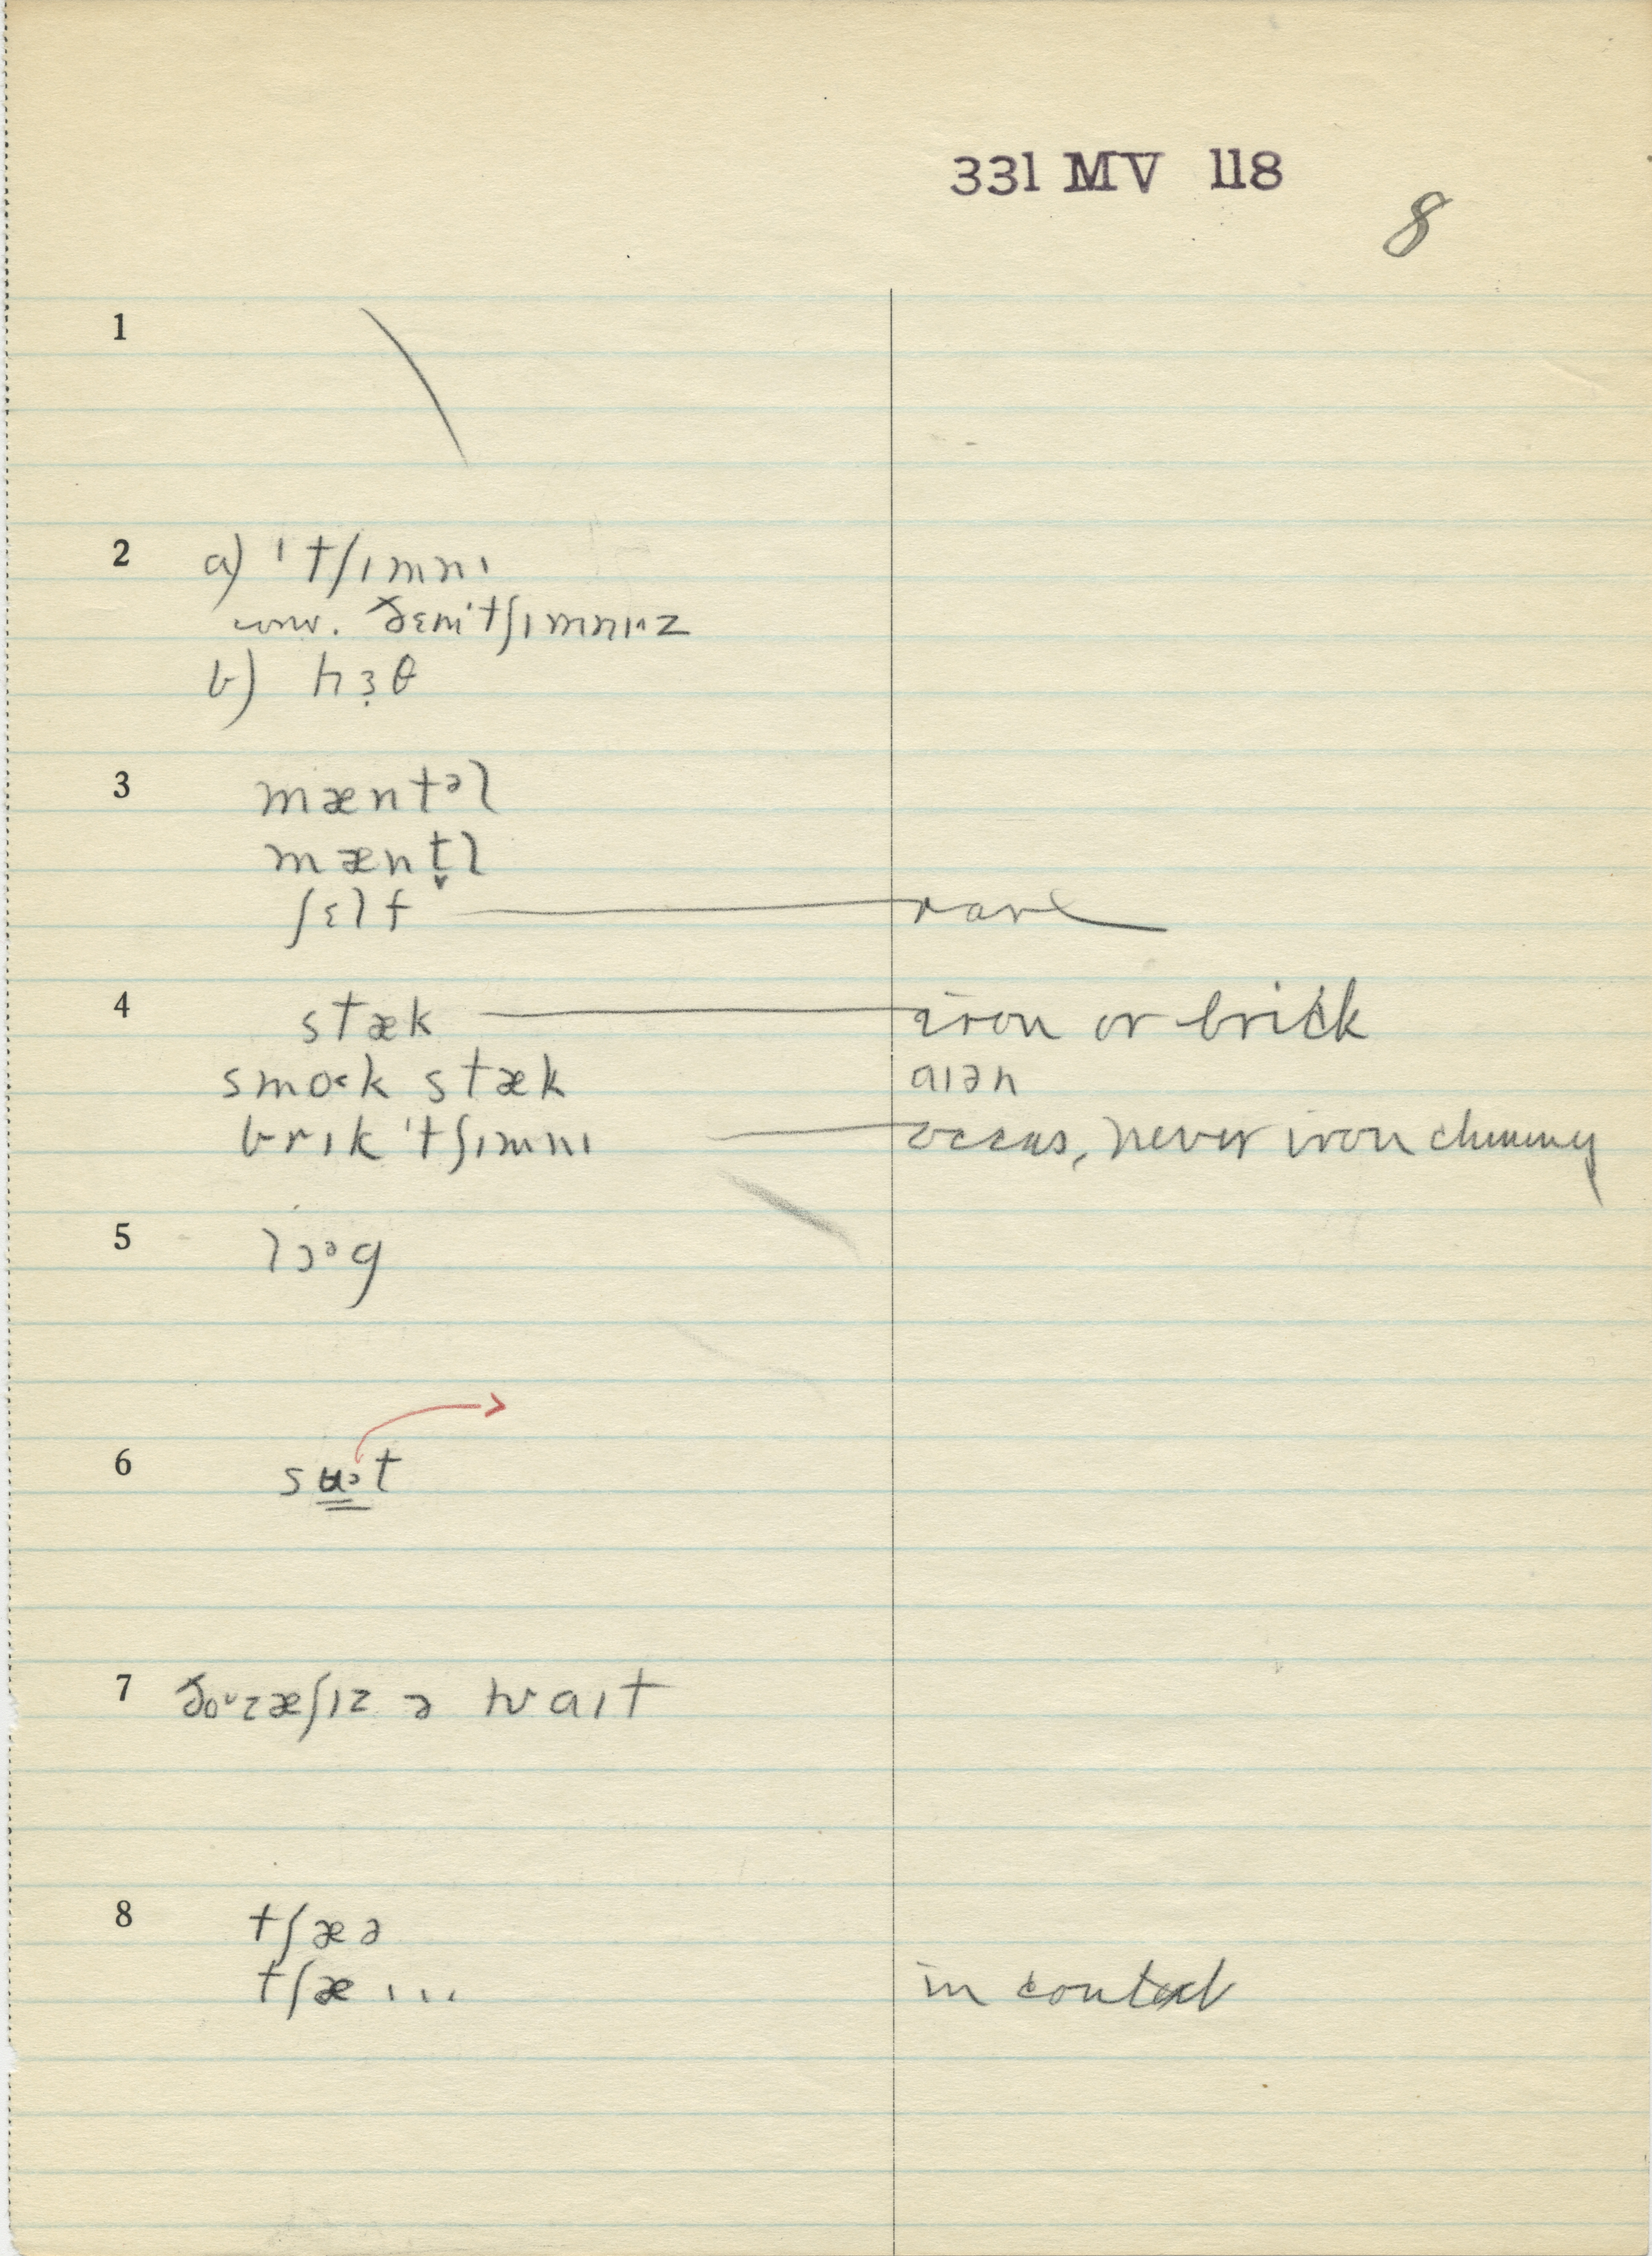 331 MV 118
8
1
2 a) ˈtʃɪmnɪ
conv. ðɛmˈtʃɪmnɪˑz
b) hɜ̣θ
3 mæntᵊl
mænt̬l
ʃɛlf — rare
4 stæk — iron or brick
smoˑk stæk aɪən
brɪk ˈtʃɪmnɪ — occas, never iron chimney
5 lɔᵊg
6 sʉᵊt
7 ðoᶷzæʃɪz ə hwaɪt
8 tʃæə
tʃæ ... in context